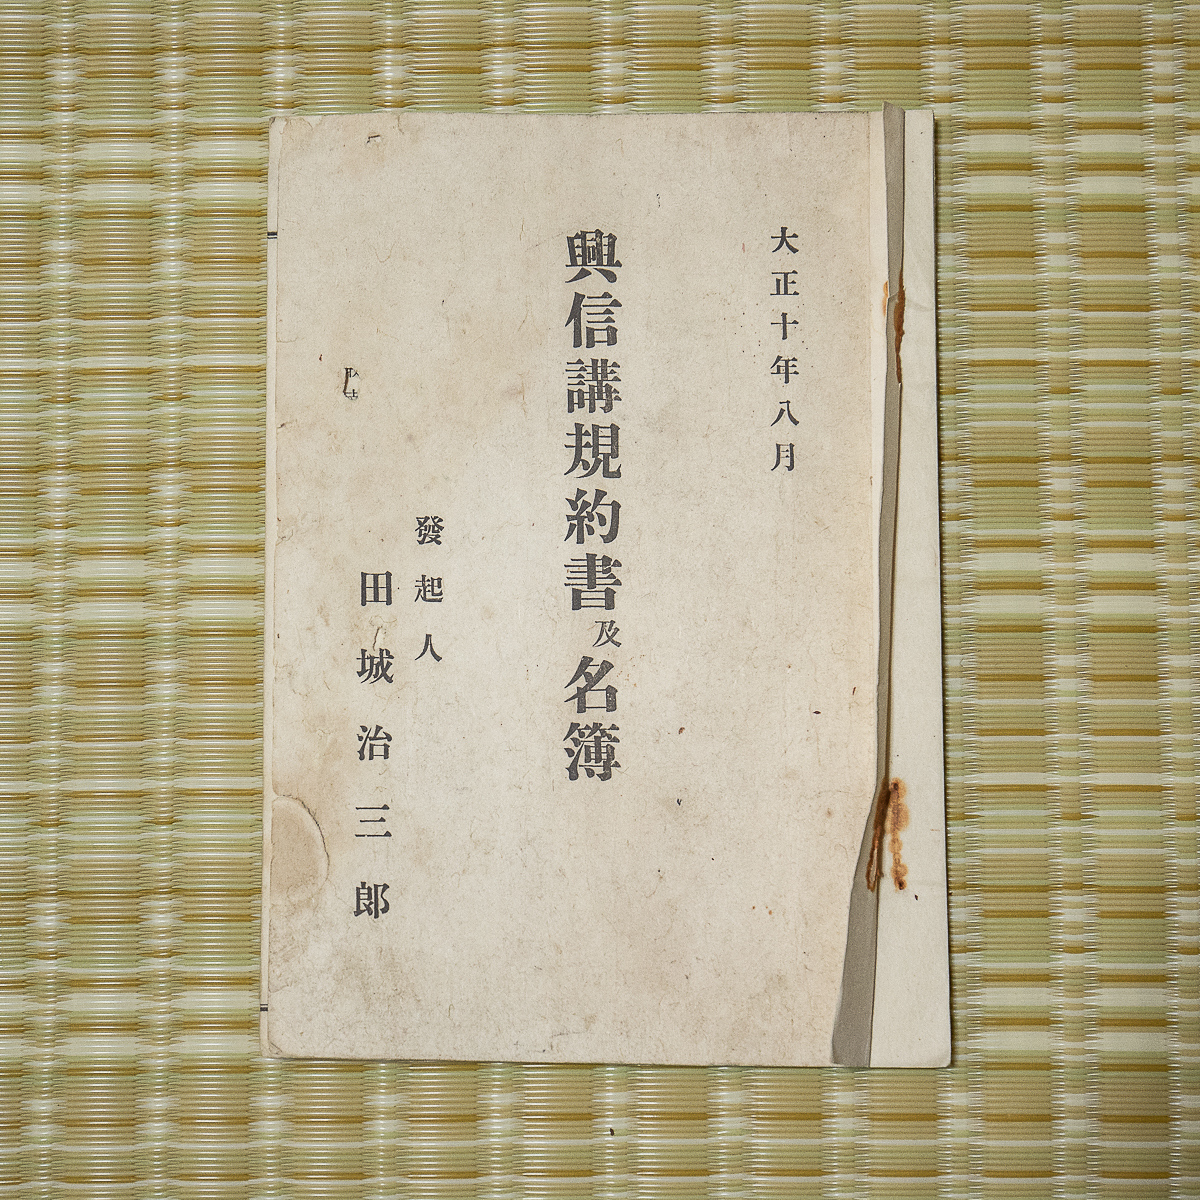 大正十年八月
興信講規約書及名簿
發起人
田城治三郎